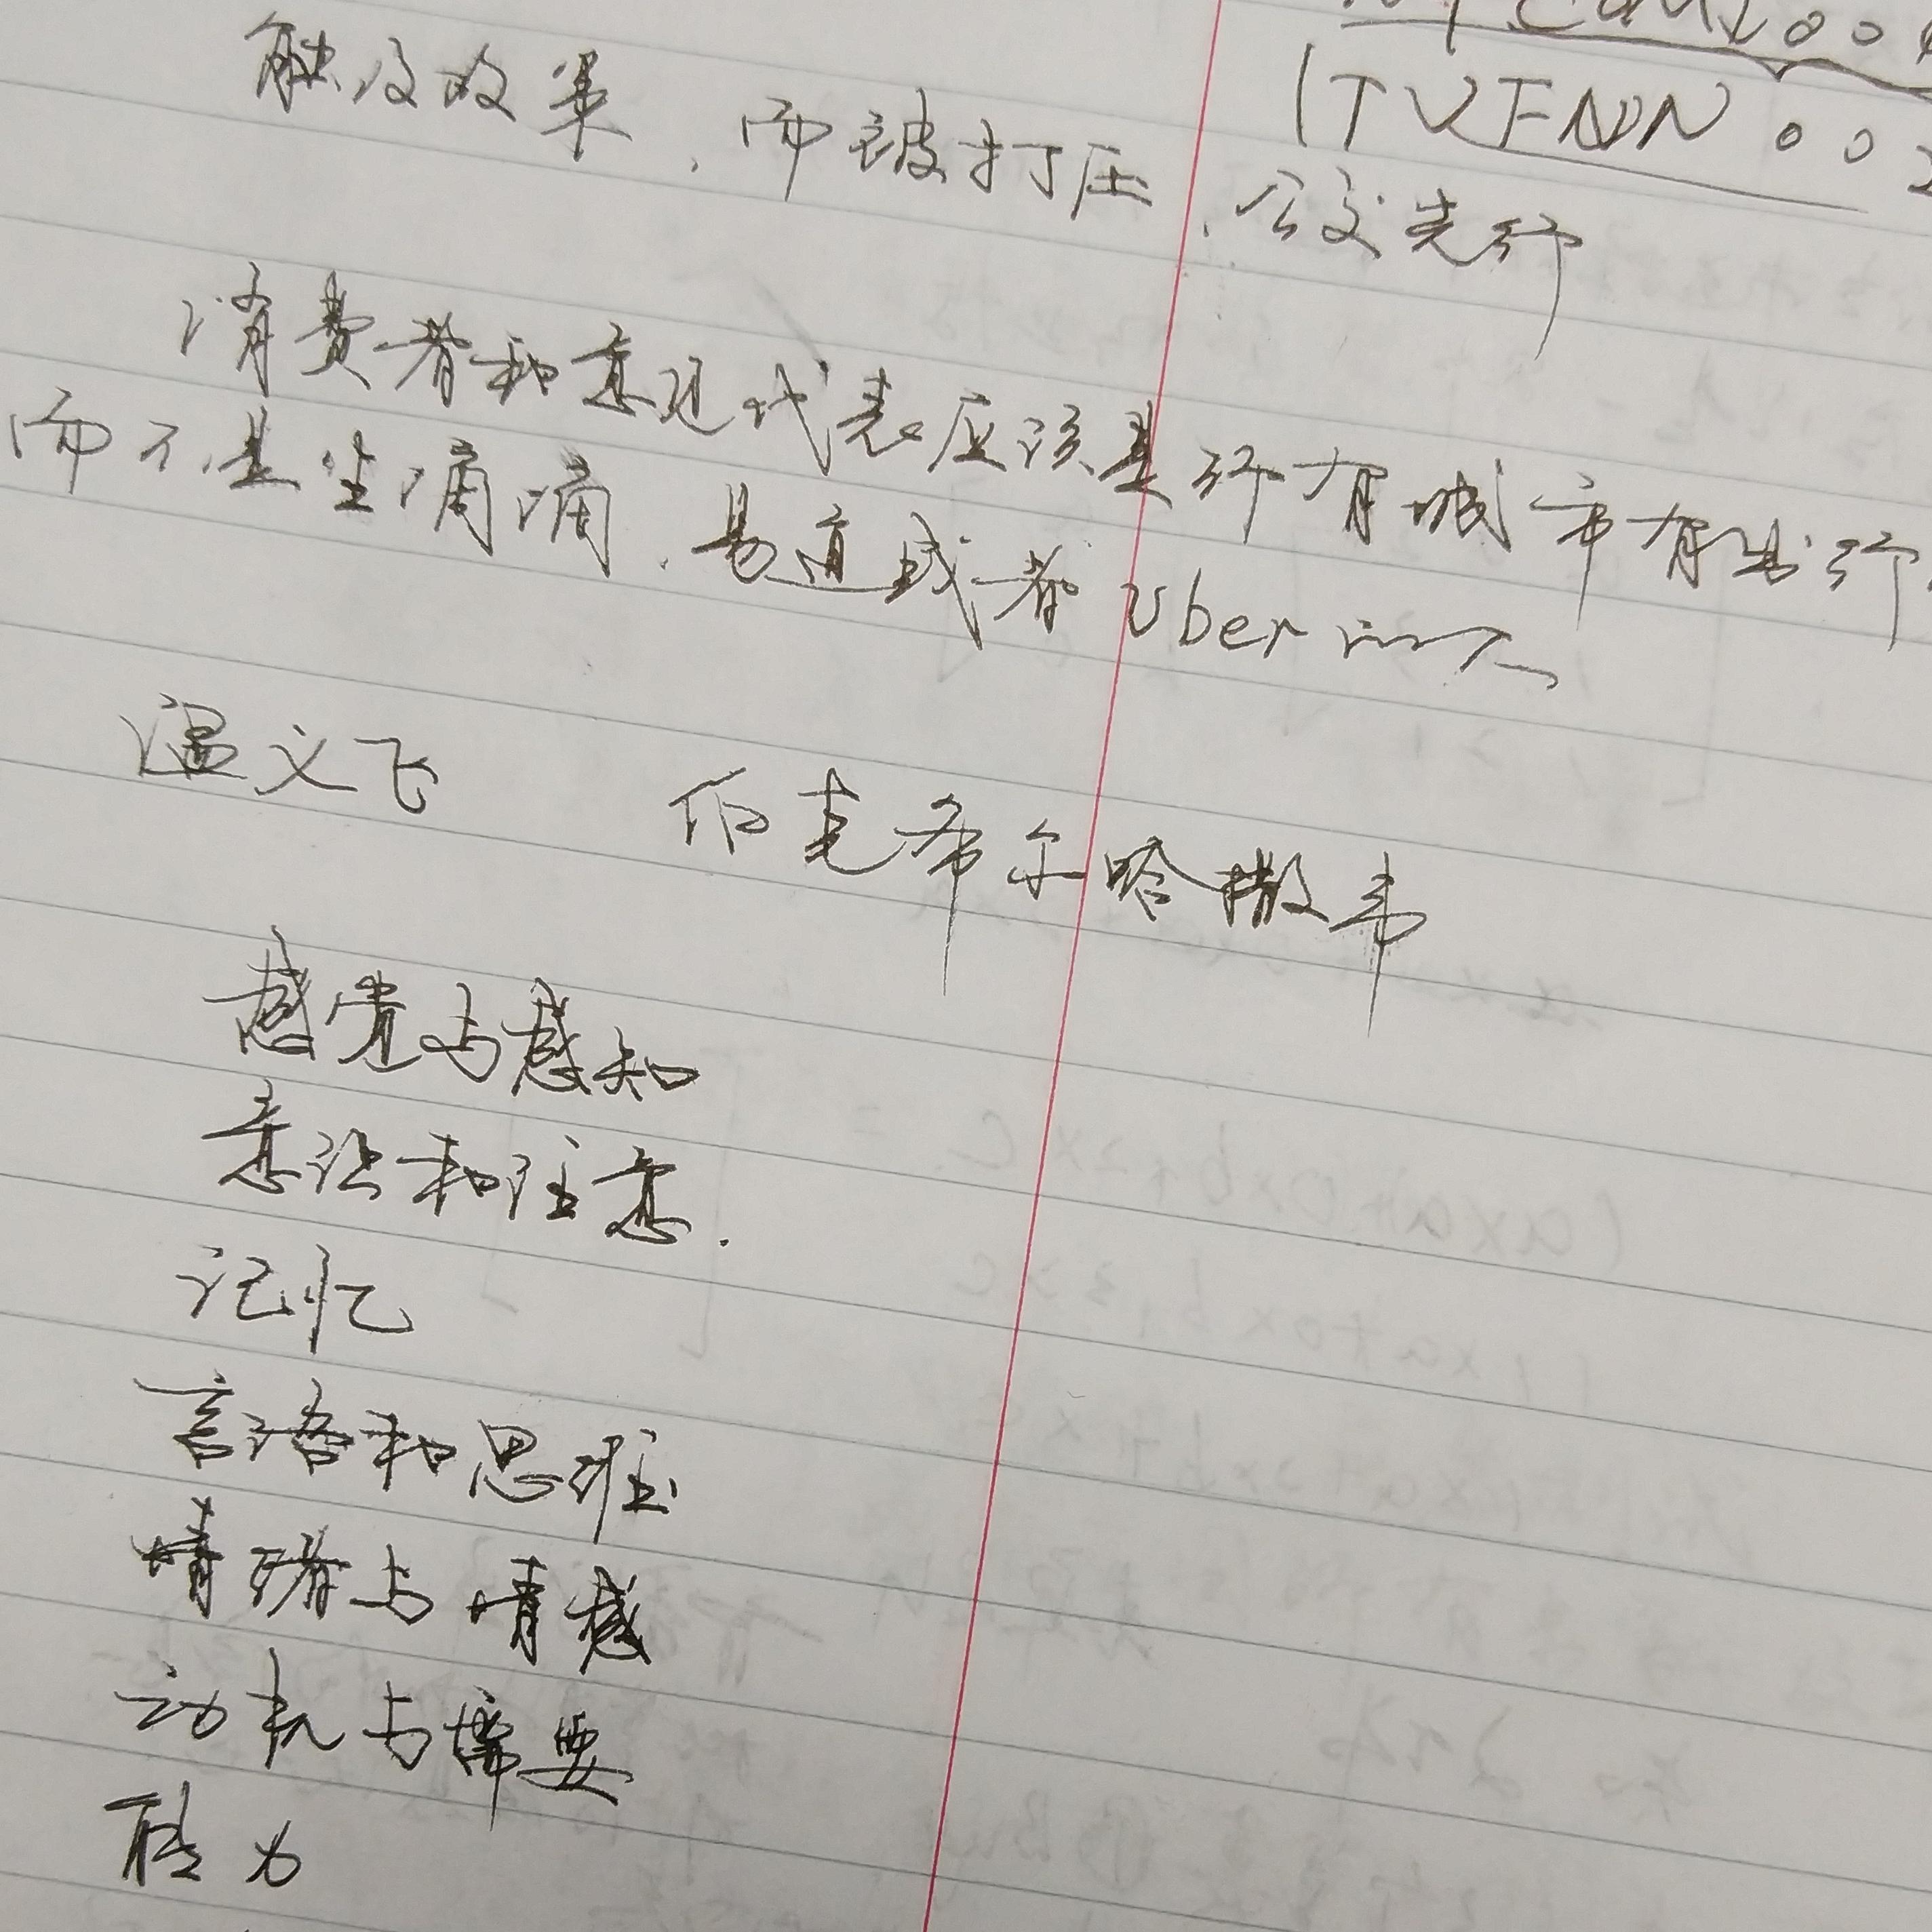 (TVFNN 002
触及政策，而被打压，公交先行
消费者和意见代表应该是所有城市有出行
而不是坐滴滴、易道或者Uber的人
温义飞 伯克希尔哈撒韦
感觉与感知
意识和注意.
记忆
言语和思维
情绪与情感
动机与需要